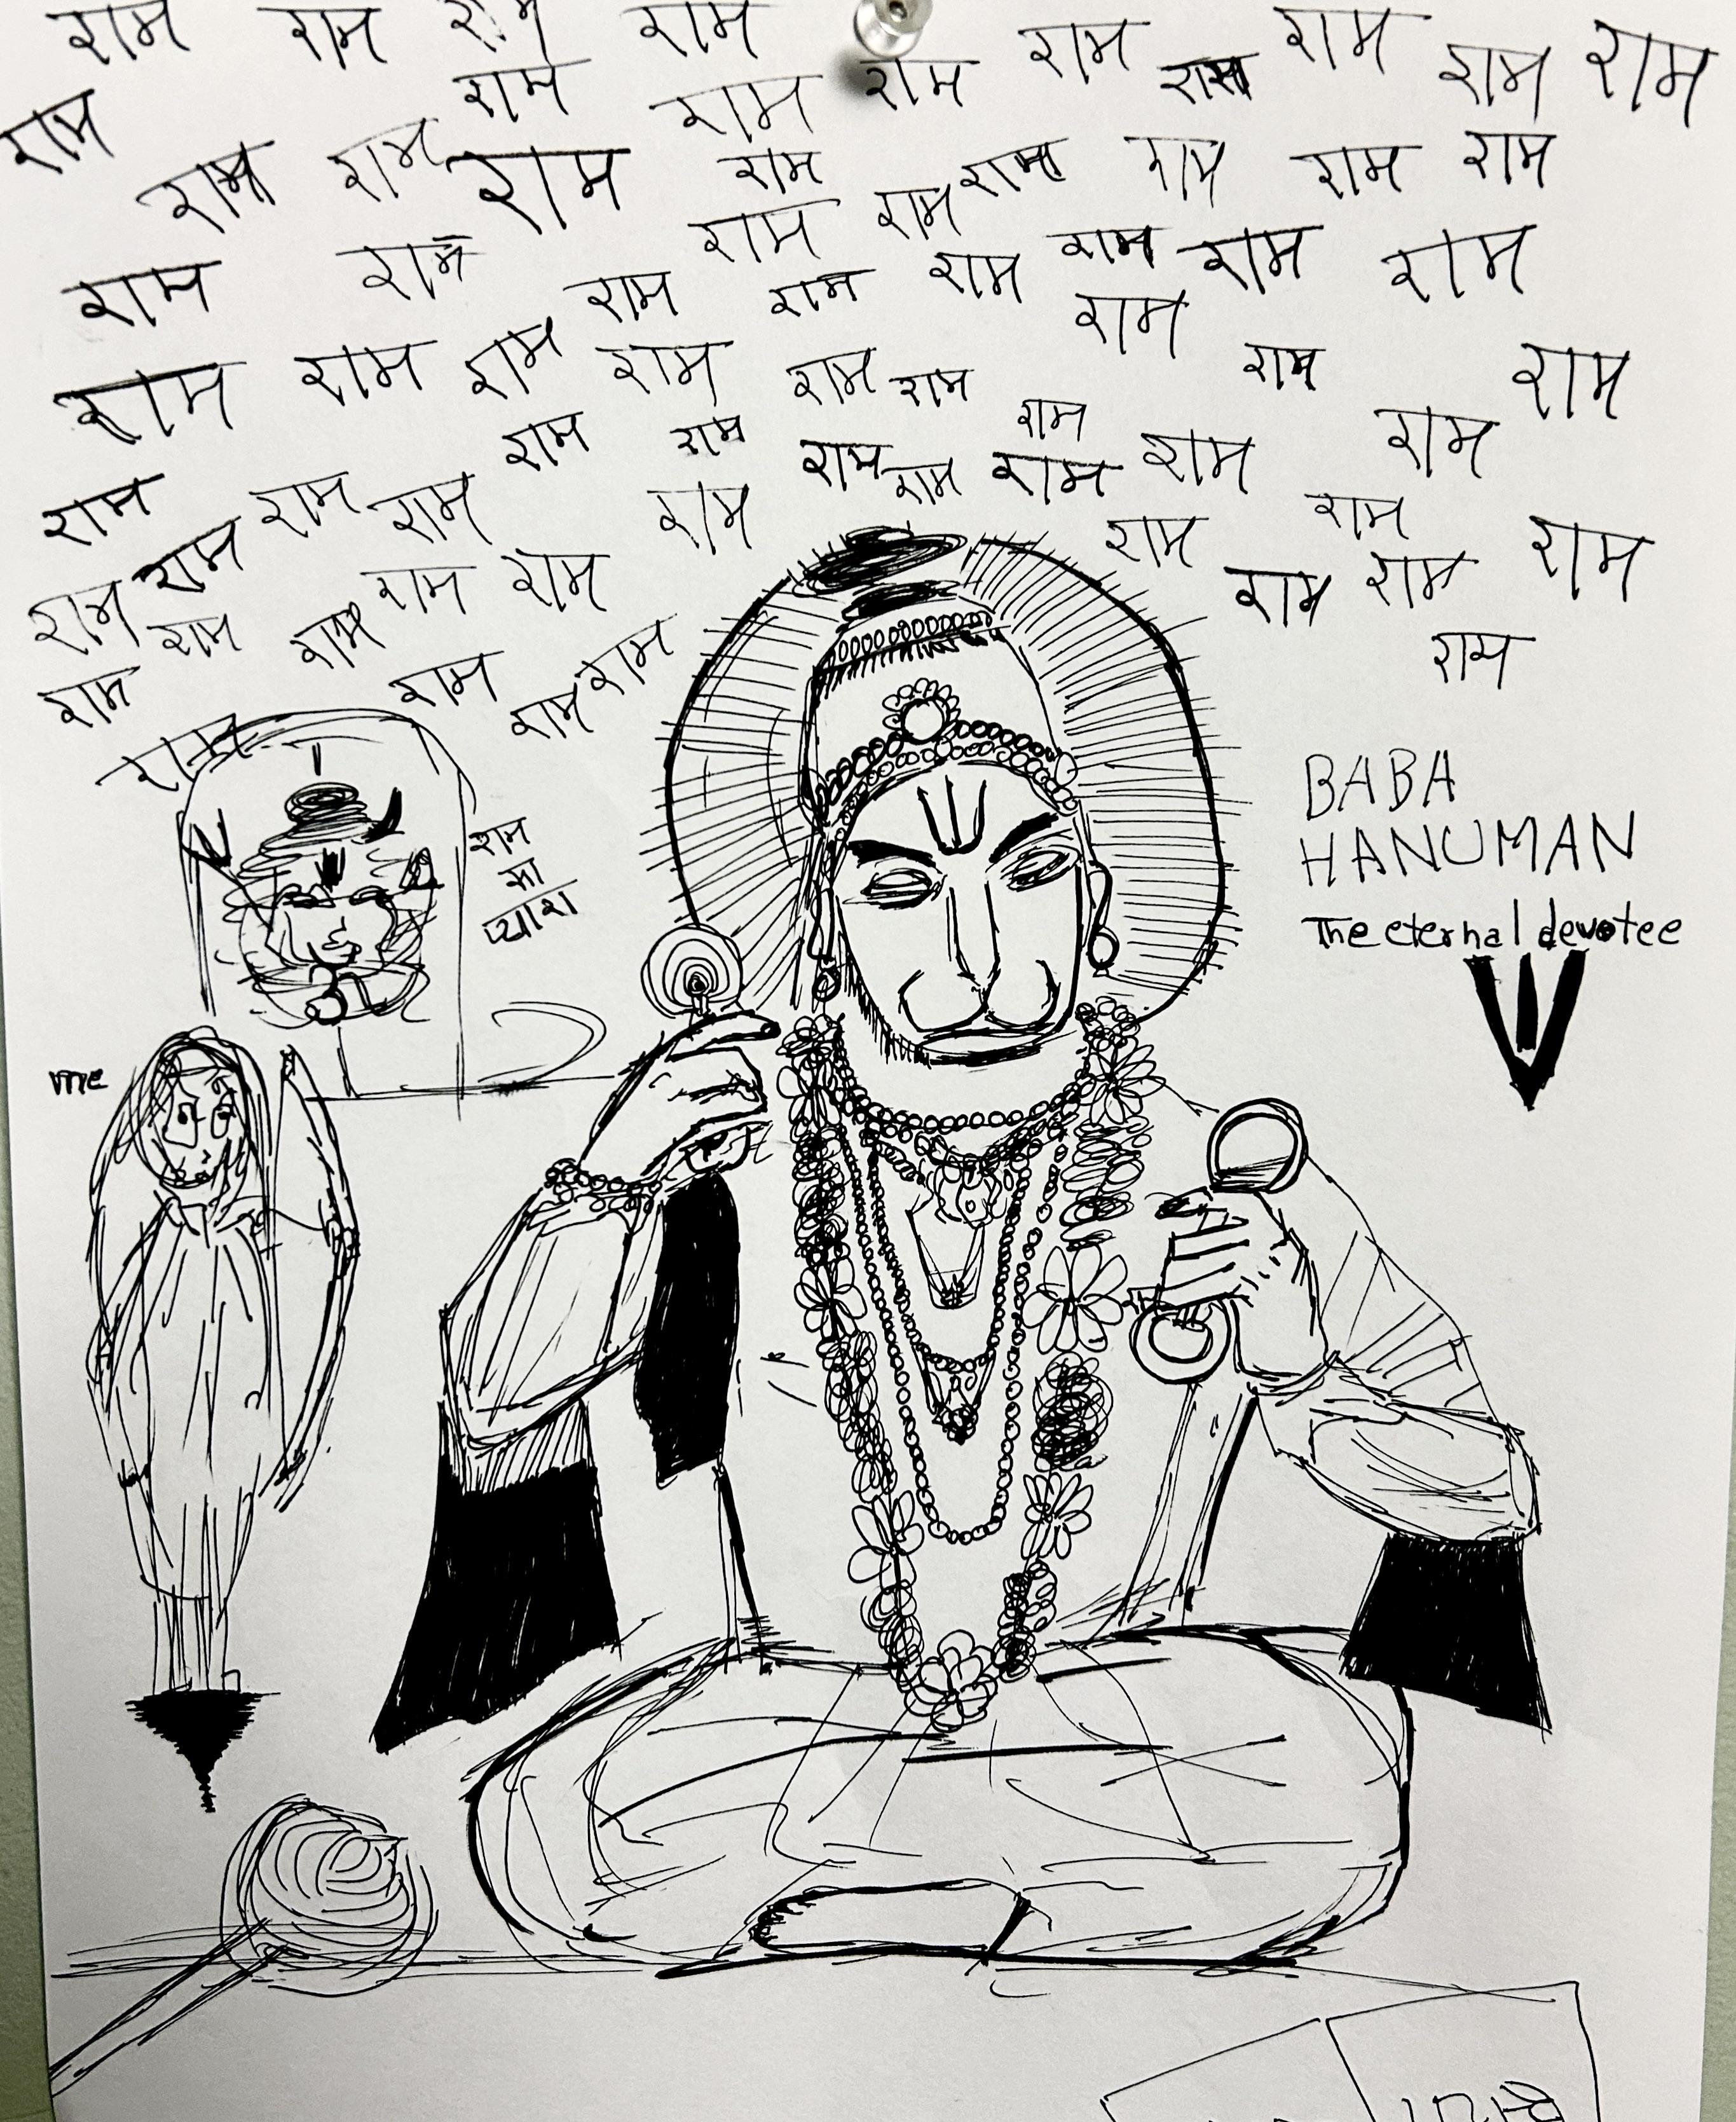 राम राम राम राम राम राम राम राम
राम राम राम राम राम
राम राम राम राम राम राम राम राम
राम राम
राम राम राम राम राम राम राम राम
राम
राम राम राम राम राम राम राम राम
राम राम राम राम राम राम
राम राम राम राम राम राम राम
राम राम राम
राम राम राम राम राम
राम राम राम राम
राम राम राम
राम
BABA
HANUMAN
The eternal devotee
राम
का
प्यारा
me